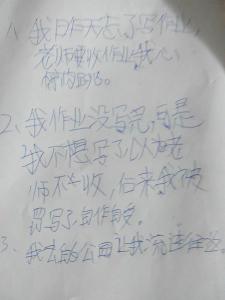 1、我昨天忘了写作业,
老师要收作业我心
2、我作业没写完,可是
我不想写了以为老
师不收,后来我被
罚写了
3、我去的公园让我流连往返。